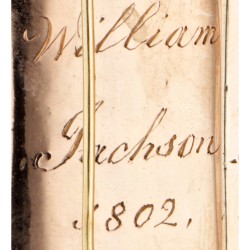 William
Jackson.
1802.